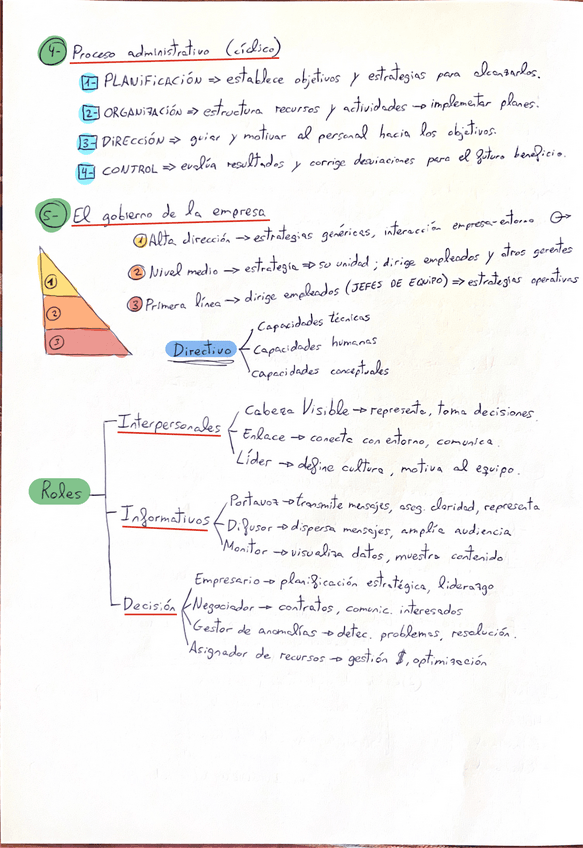 4- Proceso administrativo (cíclico)
1- PLANIFICACIÓN => establece objetivos y estrategias para alcanzarlos.
2- ORGANIZACIÓN => estructura recursos y actividades → implementar planes.
3- DIRECCIÓN => guiar y motivar al personal hacia los objetivos.
4- CONTROL => evalúa resultados y corrige desviaciones para el futuro beneficio.
5- El gobierno de la empresa
1 Alta dirección → estrategias genéricas, interacción empresa-entorno
2 Nivel medio → estrategia => su unidad; dirige empleados y otros gerentes
3 Primera línea → dirige empleados (JEFES DE EQUIPO) => estrategias operativas
1
2
3
Directivo
Capacidades técnicas
Capacidades humanas
Capacidades conceptuales
Roles
Interpersonales
Cabeza Visible → representa, toma decisiones.
Enlace → conecta con entorno, comunica.
Líder → define cultura, motiva al equipo.
Informativos
Portavoz → transmite mensajes, aseg. claridad, representa
Difusor → dispersa mensajes, amplía audiencia
Monitor → visualiza datos, muestra contenido
Decisión
Empresario → planificación estratégica, liderazgo
Negociador → contratos, comunic. interesados
Gestor de anomalías → detec. problemas, resolución.
Asignador de recursos → gestión $, optimización